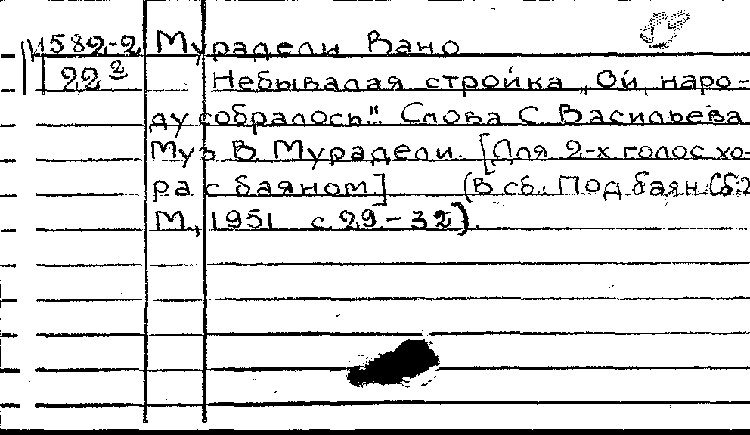 М582-2 Мурадели Вано
22² Небывалая стройка „Ой, наро-
ду собралось". Слова С. Васильева
Муз В. Мурадели. [Для 2-х голос хо-
ра с баяном] (В сб.: Под баян. Сб. 2
М., 1951 с. 29-32).